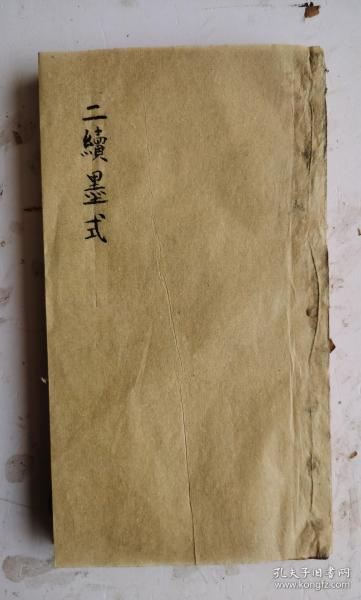 二續墨式
孔夫子旧书网
www.kongfz.com